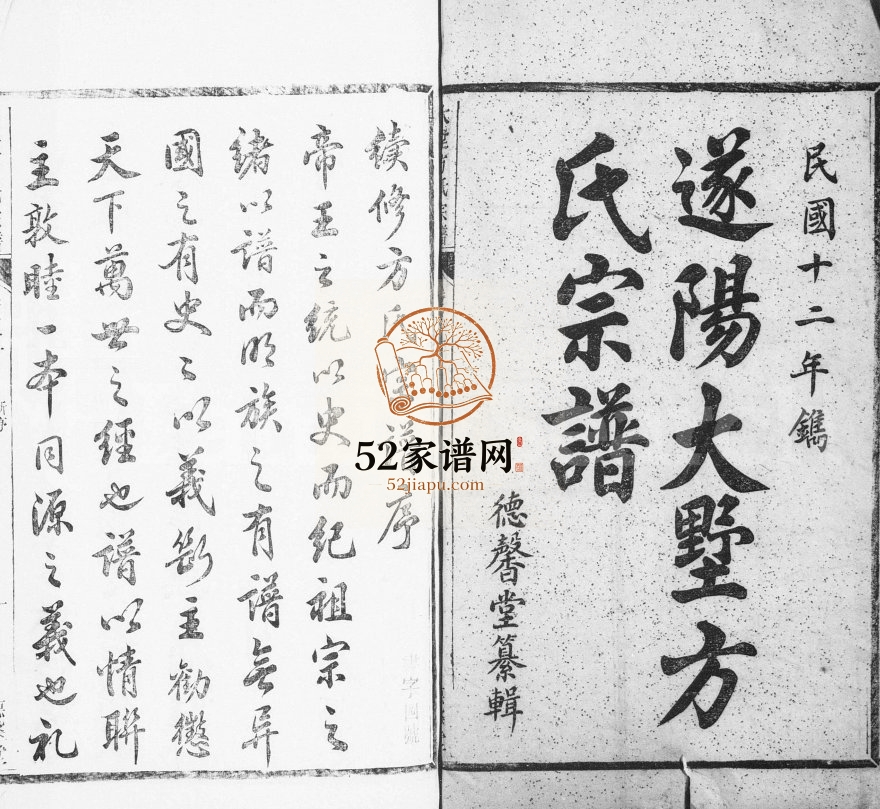 民國十二年鐫
遂陽大墅方
氏宗譜
德馨堂纂輯
續修方氏宗譜序
帝王之統以史而紀祖宗之
緒以譜而明族之有譜無异
國之有史〻以義斷主勸懲
天下萬世之經也譜以情聯
主敦睦一本同源之義也礼
52家谱网
52jiapu.com